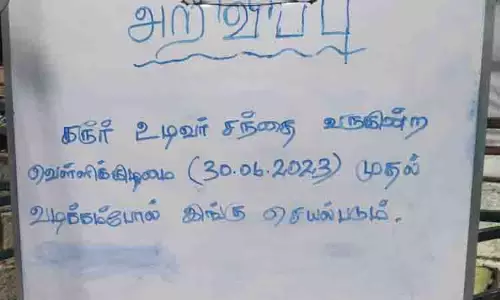 அறிவிப்பு
கரூர் உழவர் சந்தை வருகின்ற
வெள்ளிக்கிழமை (30.06.2023) முதல்
வழக்கம்போல் இங்கு செயல்படும்.